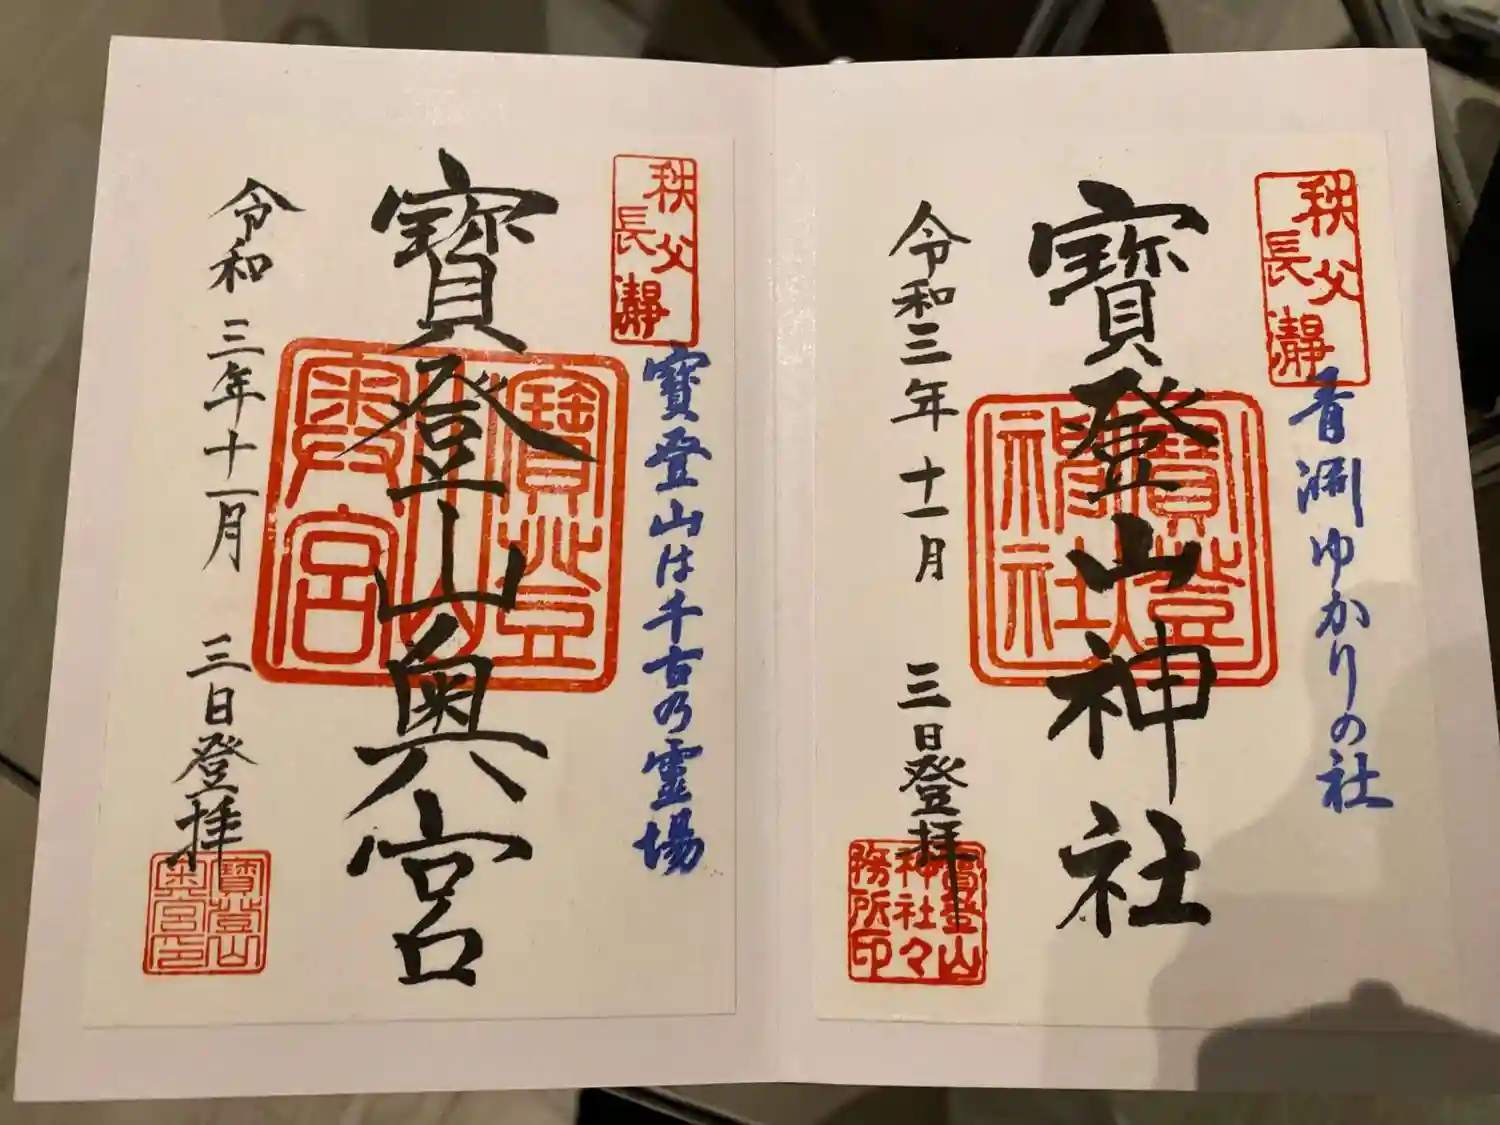 秩父
長瀞
青淵ゆかりの社
寶登山神社
寶登山
神社
令和三年十一月 三日登拝
寶登山
神社々
務所印
秩父
長瀞
寶登山は千古乃霊場
寶登山奥宮
寶登
山
奥宮
令和三年十一月 三日登拝
寶登山
奥宮印